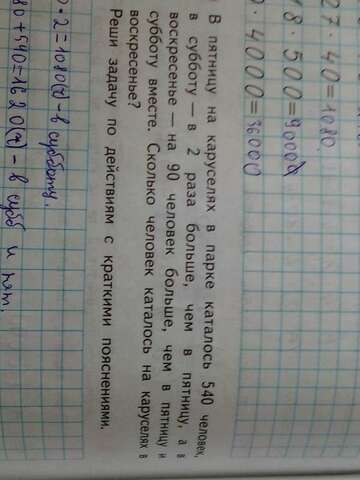 27 · 40=1080
18 · 500=9000
· 4000=36000
В пятницу на каруселях в парке каталось 540 человек,
в субботу — в 2 раза больше, чем в пятницу, а в
воскресенье — на 90 человек больше, чем в пятницу и
субботу вместе. Сколько человек каталось на каруселях в
воскресенье?
Реши задачу по действиям с краткими пояснениями.
· 2=1080(ч)-в субботу.
80+540=1620(ч)-в субб и пят.